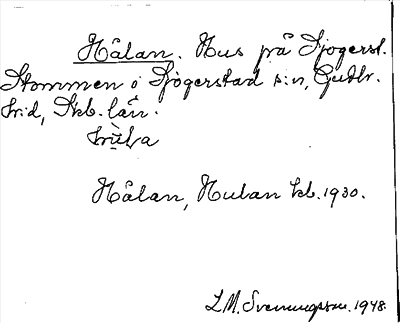 Hålan. Hus på Sjögerst.
Stommen i Sjögerstad s:n, Gudhr.
hrd, Skb. län.
hùla
Hålan, Hulan kb. 1930.
L.M. Svenungsson. 1948.